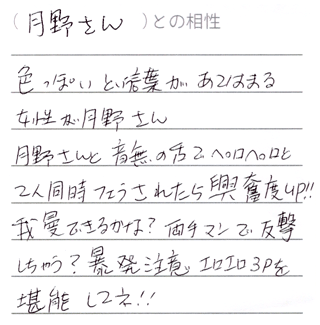 （月野さん）との相性
色っぽいと言葉があてはまる
女性が月野さん
月野さんと音無の舌でペロペロと
2人同時フェラされたら興奮度UP!!
我慢できるかな?両手マンで反撃
しちゃう?暴発注意。エロエロ3Pを
堪能してネ!!